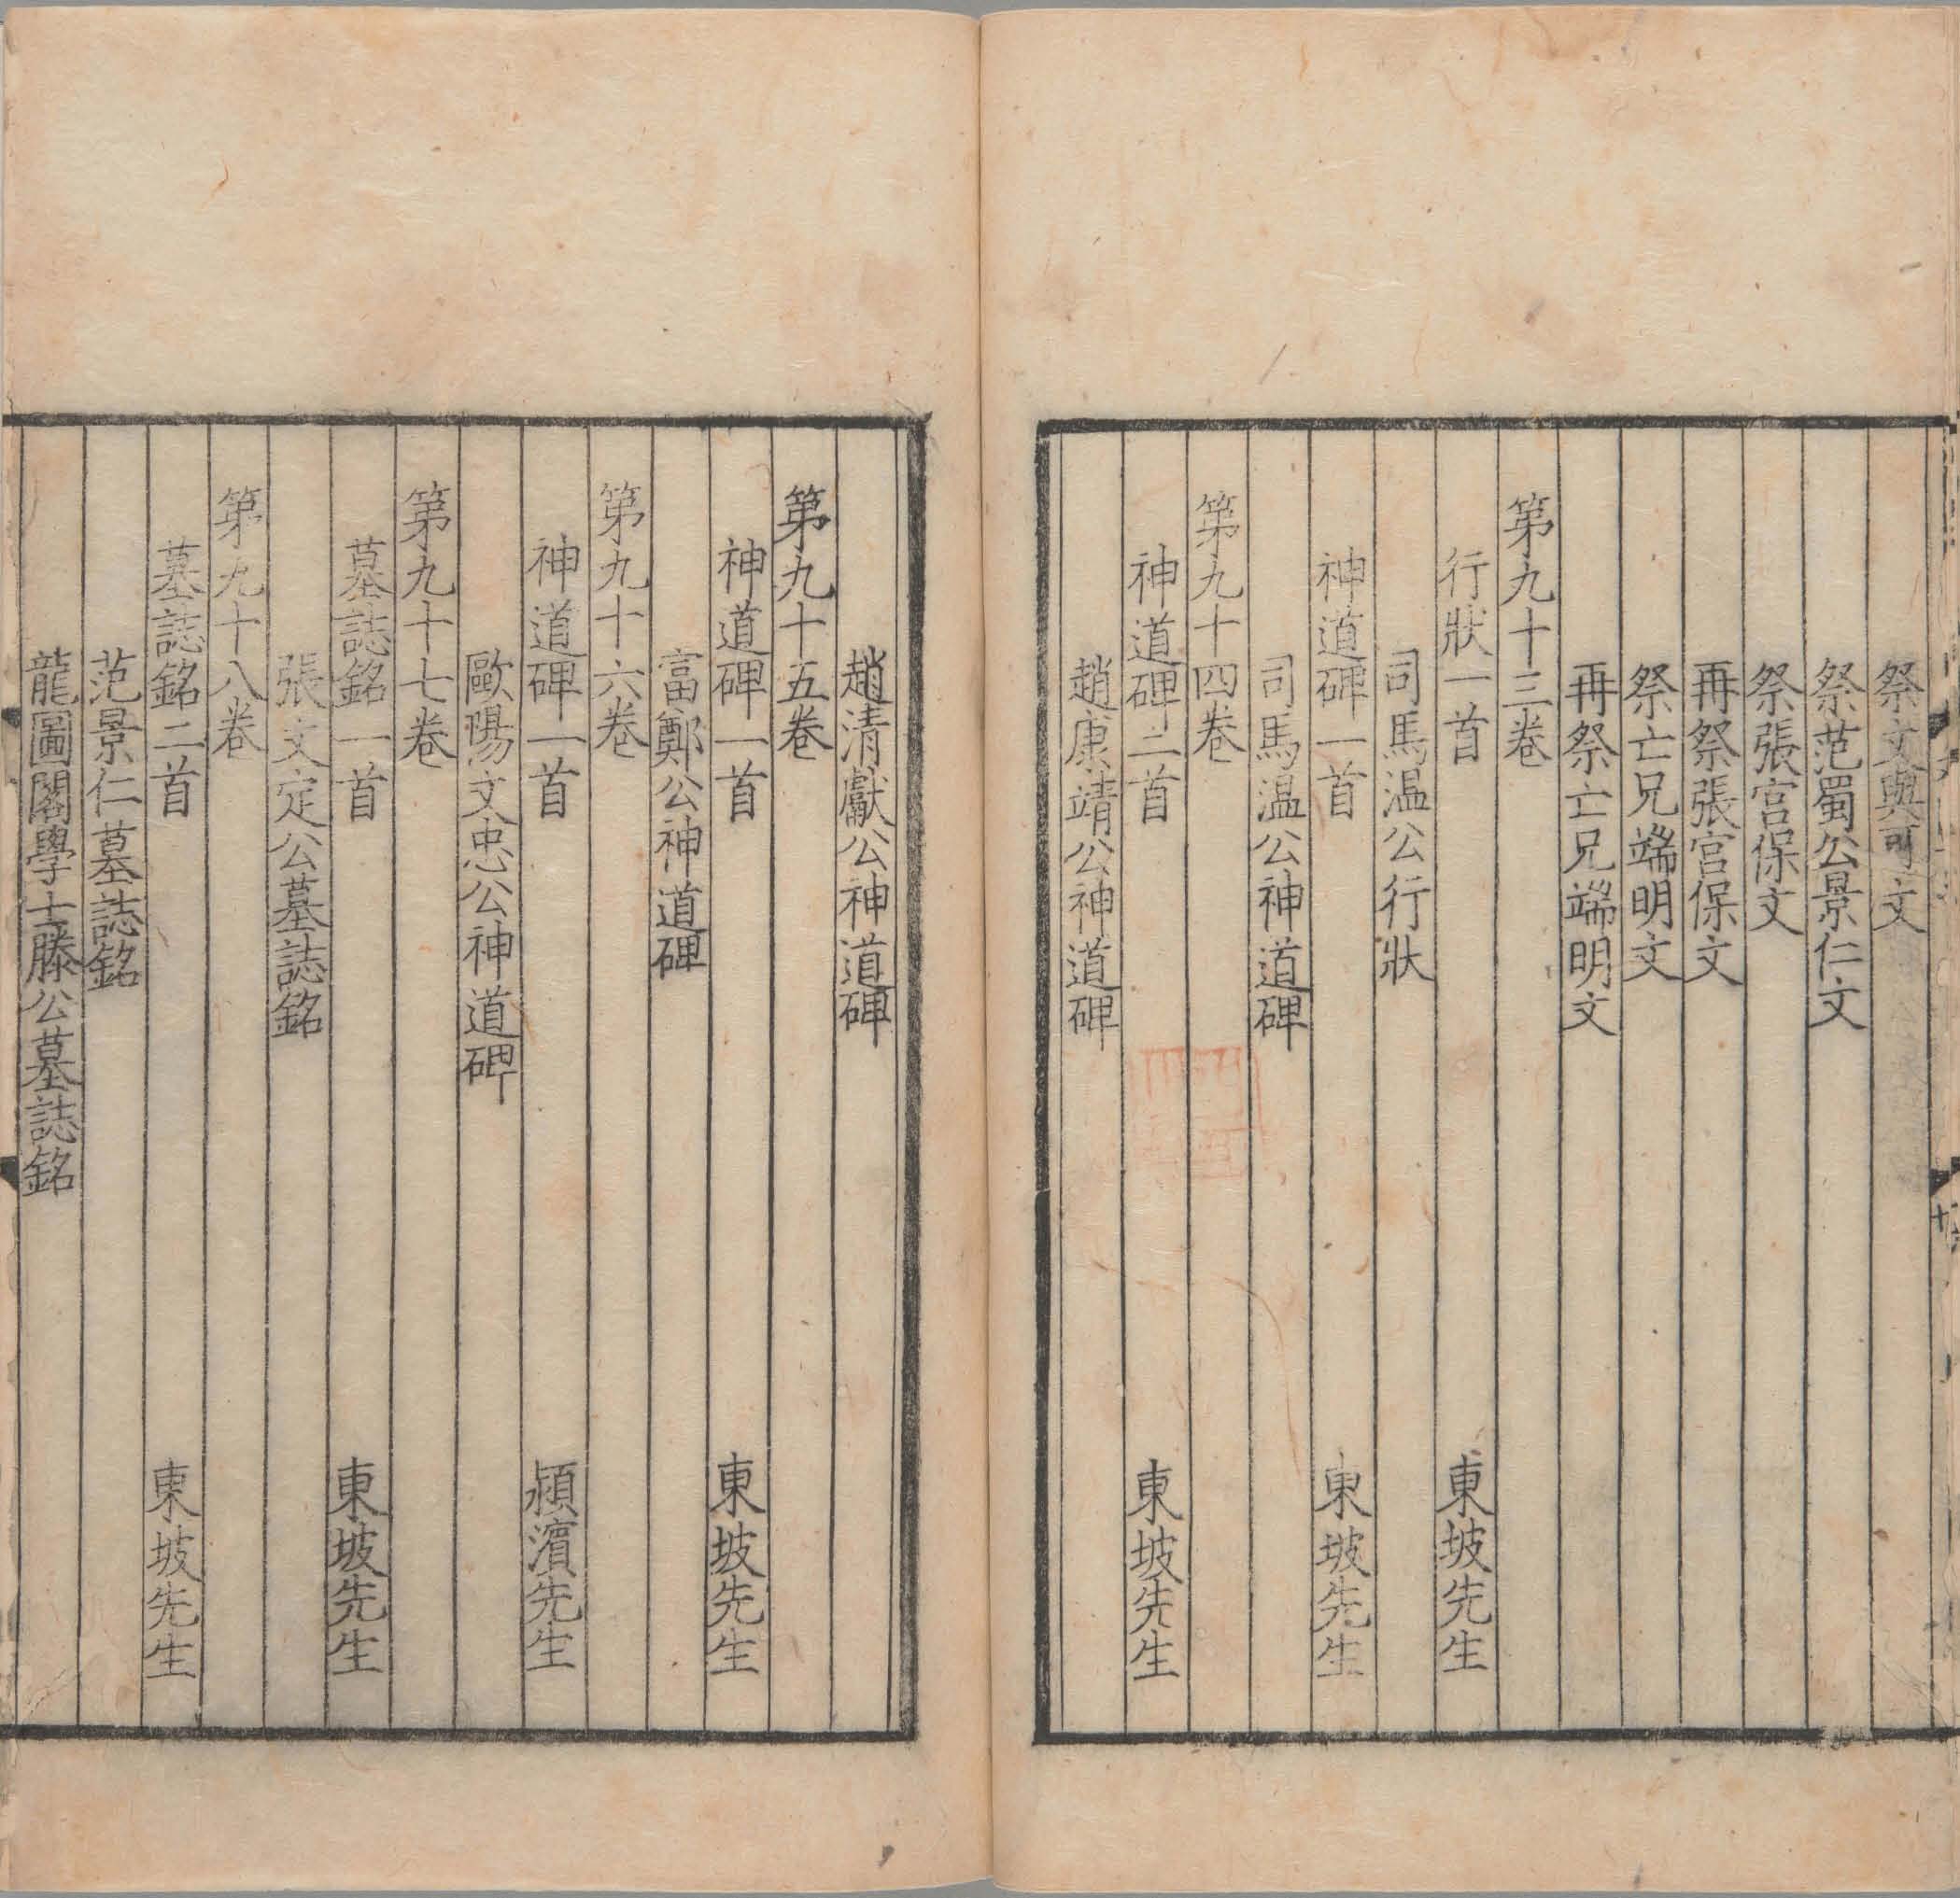 祭文與可文
祭范蜀公景仁文
祭張宫保文
再祭張宫保文
祭亡兄端明文
再祭亡兄端明文
第九十三卷
行狀一首 東坡先生
司馬温公行狀
神道碑一首 東坡先生
司馬温公神道碑
第九十四卷
神道碑二首 東坡先生
趙康靖公神道碑
趙清獻公神道碑
第九十五卷
神道碑一首 東坡先生
富鄭公神道碑
第九十六卷
神道碑一首 潁濱先生
歐陽文忠公神道碑
第九十七卷
墓誌銘一首 東坡先生
張文定公墓誌銘
第九十八卷
墓誌銘二首 東坡先生
范景仁墓誌銘
龍圖閣學士滕公墓誌銘